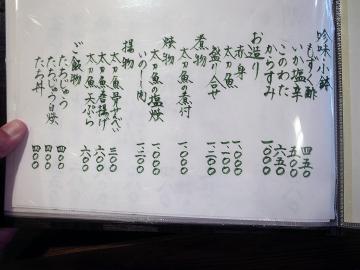 吟味・小鉢
もずく酢 四五〇
いか塩辛 五〇〇
このわた 六五〇
からすみ 一〇〇〇
お造り
赤身 一〇〇〇
太刀魚 一一〇〇
盛り合せ 一二〇〇
煮物
太刀魚の煮付 一〇〇〇
焼物
太刀魚の塩焼 一〇〇〇
いのしし肉 一三〇〇
揚物
太刀魚骨せんべい 三〇〇
太刀魚唐揚げ 六〇〇
太刀魚天ぷら 六〇〇
ご飯物
たちじゅう 四〇〇
たちじゅう白焼 四〇〇
たち丼 四〇〇